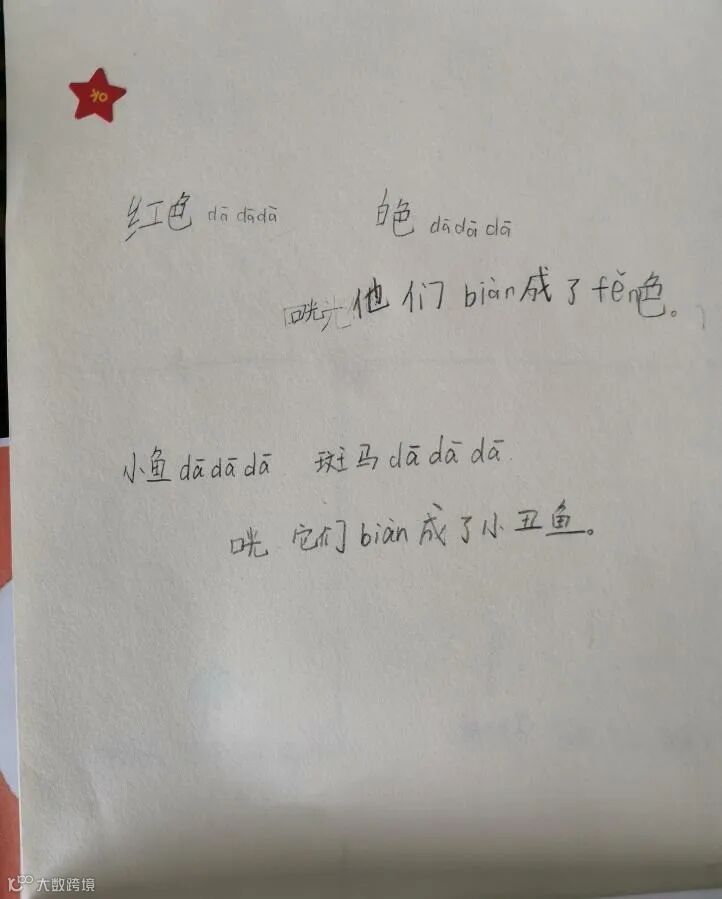 OK
红色 dā dādā 白色 dādā dā
咣光他们biàn成了fěn色。
小鱼dādādā 斑马dādādā
咣 它们biàn成了小丑鱼。
大数跨境